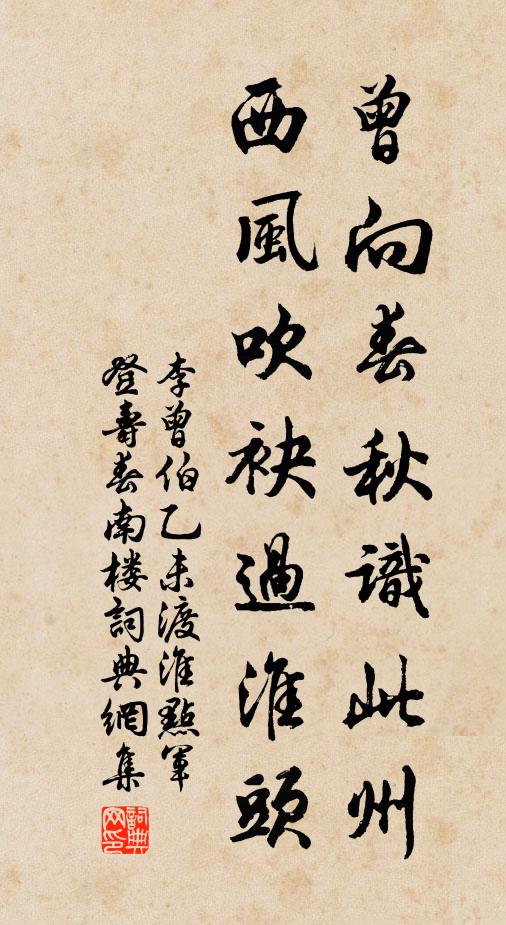 曾向春秋識此州
西風吹袂過淮頭
李曾伯乙未渡淮點軍
登壽春南楼詞典網集
詞典网印